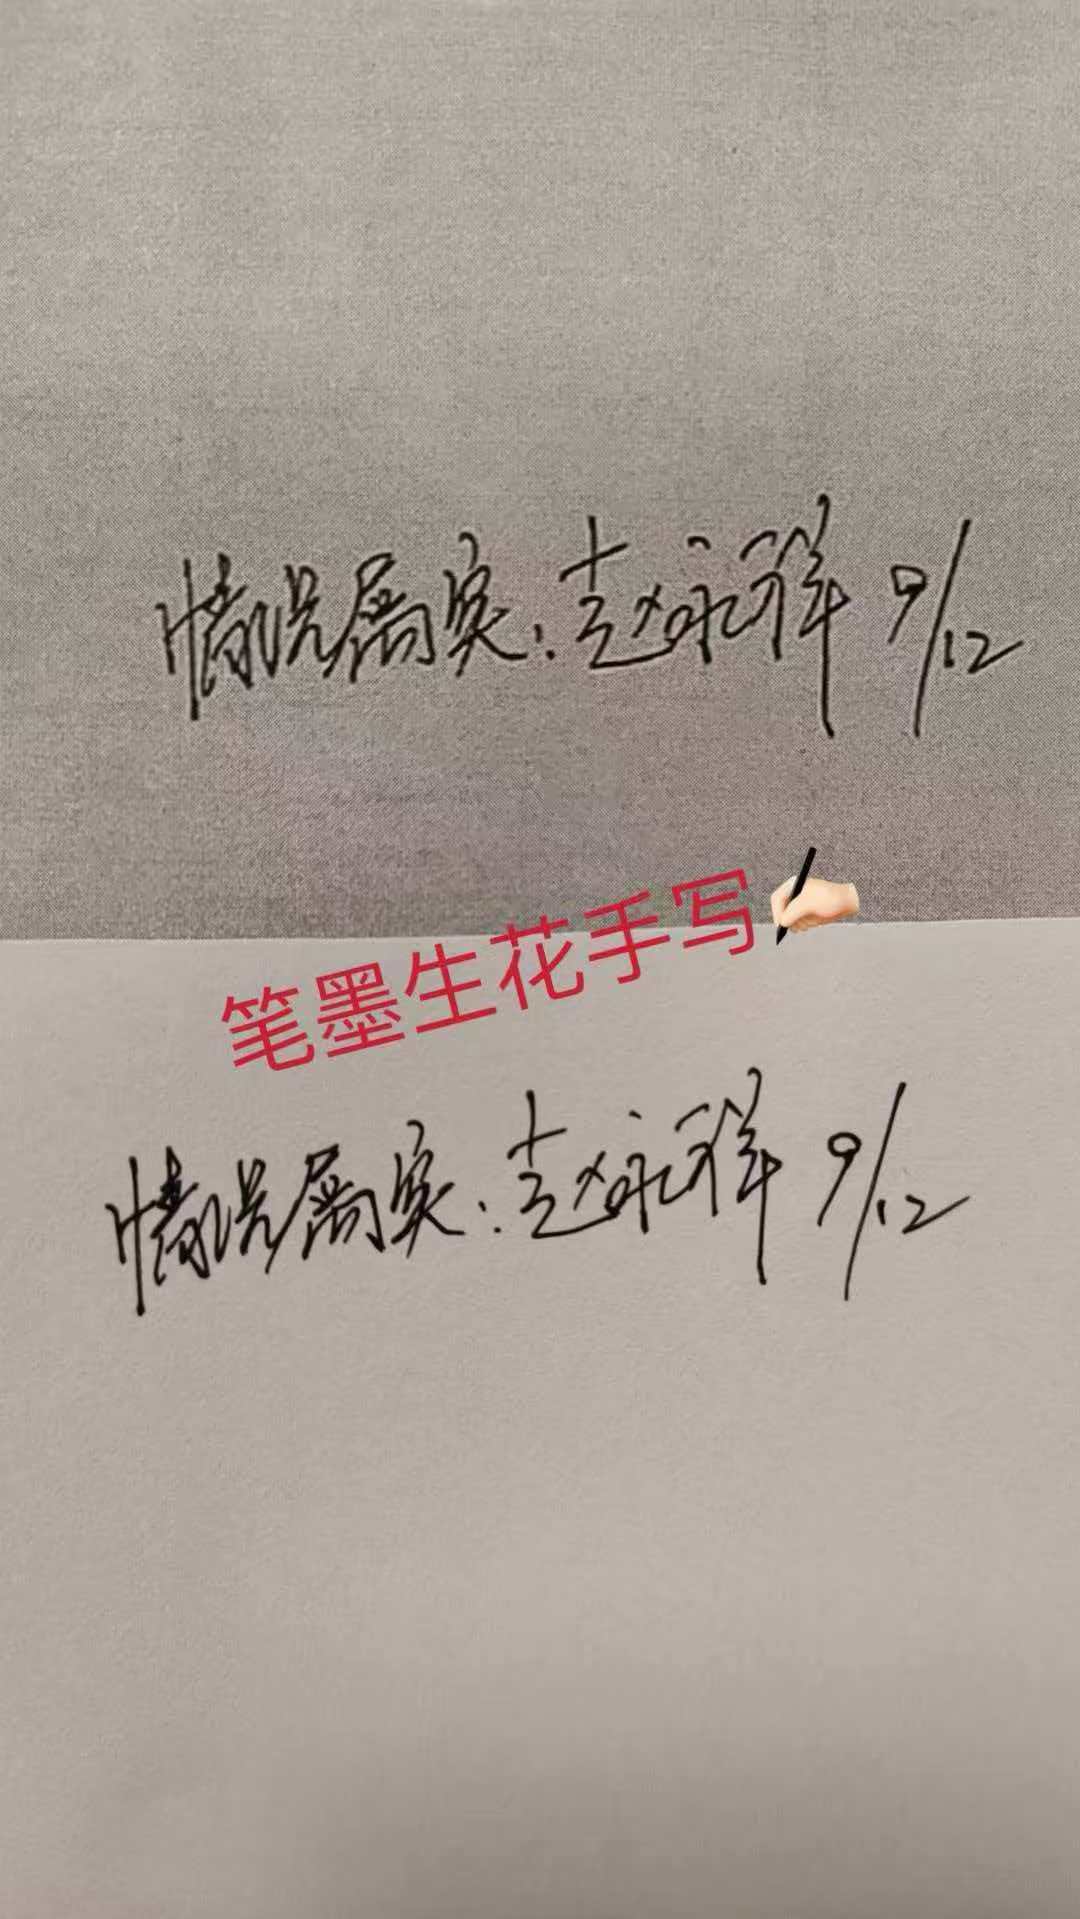 情况属实:赵永祥 9/12
笔墨生花手写✍🏻
情况属实:赵永祥 9/12